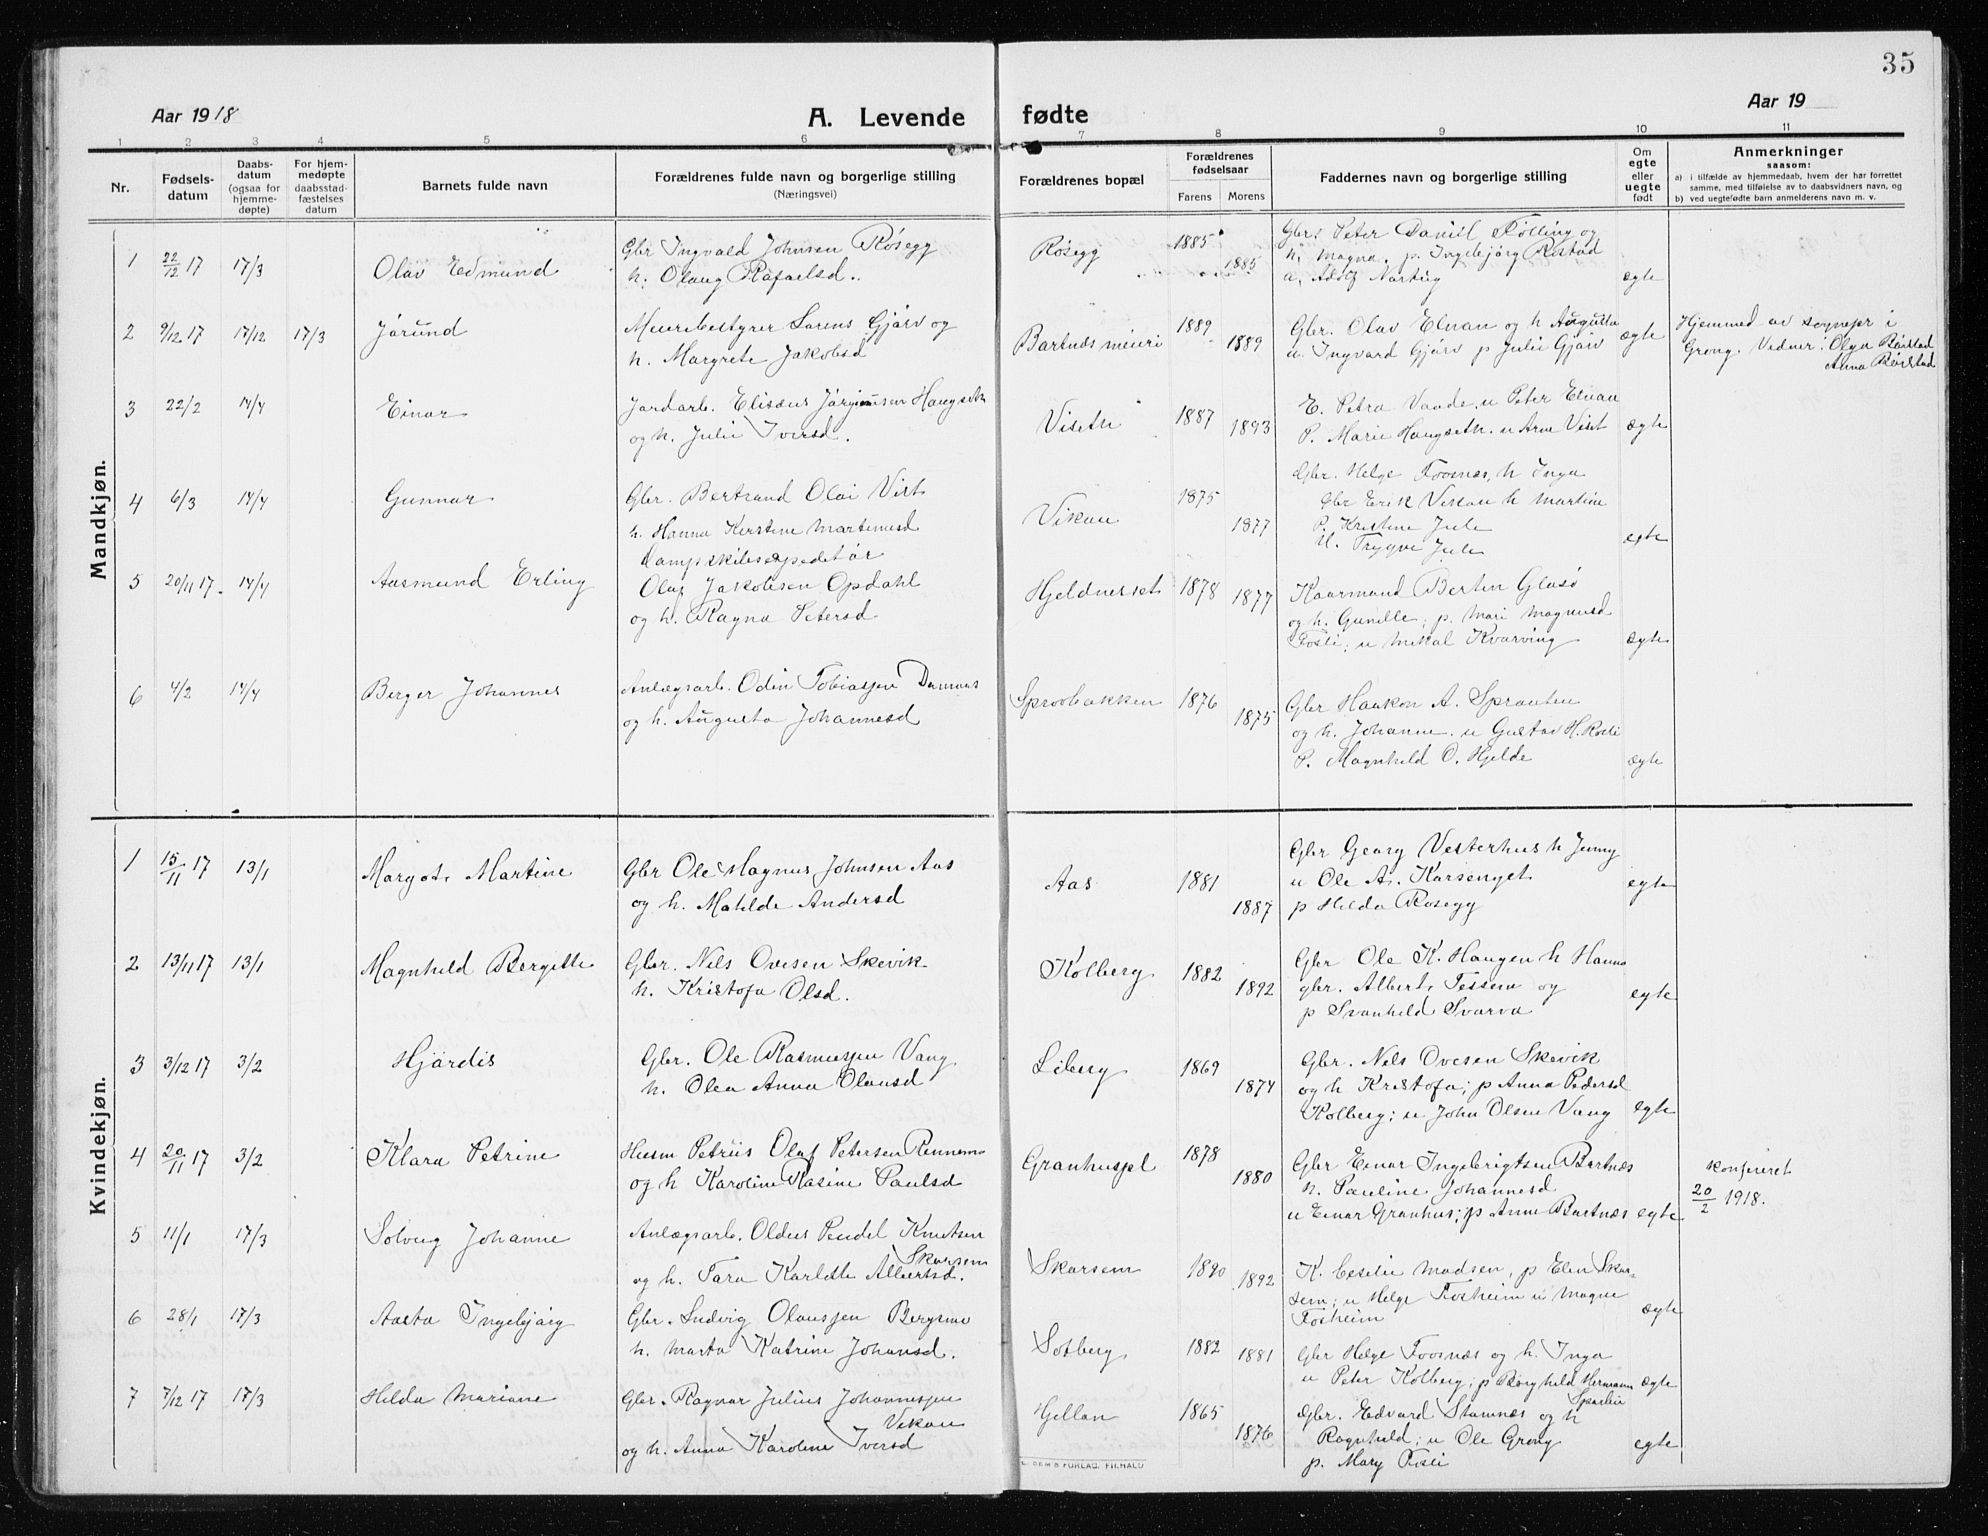 35
Aar 1918
A. Levende fødte
Aar 19
1 2 3 4 5 6 7 8 9 10 11
Nr.
Fødsels-
datum
Daabs-
datum
(ogsaa for
hjemme-
døpte)
For hjem-
medøpte
daabsstad-
fæstelses
datum
Barnets fulde navn
Forældrenes fulde navn og borgerlige stilling
(Næringsvei)
Forældrenes bopæl
Forældrenes
fødselsaar
Farens Morens
Faddernes navn og borgerlige stilling
Om
egte
eller
uegte
født
Anmerkninger
saasom:
a) i tilfælde av hjemmedaab, hvem der har forrettet
samme, med tilføielse av to daabsvidners navn, og
b) ved uegtefødte barn anmelderens navn m. v.
Mandkjøn.
1 22/12 17 17/3 Olav Edmund
Gbr Ingvald Johnsen Røsegg
h. Olaug Rafaelsd..
Røsegg 1885 1885
Gbr. Peter Daniel Følling og
h. Magna. p. Ingebjørg Ristad
u. Adolf Nartug
ægte
2 9/12 17 17/12 17/3 Jørund
Meieribestyrer Lorens Gjørv og
h. Margrete Jakobsd
Bartnes meieri 1889 1889
Gbr. Olav Elnan og h Augusta
u. Ingvard Gjørv p Julie Gjørv
ægte
Hjemmed av sognepr i
Grong. Vidner: Olga Børstad
Anna Børstad
3 22/2 14/4 Einar
Jordarb. Elisæus Jørginsen Haugseth
og h. Julie Iversd.
Viseth 1887 1893
E. Petra Vaade. u Peter Elnan
P. Marie Haugseth. u Arne Viset
ægte
4 6/3 14/4 Gunnar
Gbr. Bertrand Olai Vist
h. Hanna Kerstine Martinusd
Vikan 1875 1877
Gbr. Helge Foosnæs, h Inga
Gbr Erik Vikan h Martine
P. Kristine Jule
U. Trygve Jule
egte
5 20/11 17. 14/4 Aasmund Erling
Dampskibsexpeditør
Olaf Jakobsen Opdahl
og h. Ragna Petersd
Hjeldnesset 1878 1877
Kaarmand Bertin Glasø
og h. Gunille; p. Mari Magnusd
Fosli; u Mikal Kvarving
ægte
6 4/2 14/4 Berger Johannes
Anlægsarb. Odin Tobiassen Damaas
og h. Augusta Johannesd
Sprovbakken 1876 1875
Gbr Haakon A. Sprauten
og h. Johanne. u Gustav H. Rosli
P. Magnhild O. Hjelde
ægte
Kvindekjøn.
1 15/11 17 13/1 Margot Martine
Gbr Ole Magnus Johnsen Aas
og h. Matilde Andersd
Aas 1881 1887
Gbr Georg Vesterhus h Jenny
u Ole A. Karsenget
p Hilda Røsegg
egte
2 13/11 17 13/1 Magnhild Bergitte
Gbr. Nils Ovesen Skevik
h. Kristofa Olsd.
Kolberg 1882 1892
Gbr Ole K. Haugen h Hanna
gbr. Albert Tessem og
p Svanhild Svarva
egte
3 3/12 17 3/2 Hjørdis
Gbr. Ole Rasmussen Vang
h. Olea Anna Olausd
Liberg 1869 1874
Gbr. Nils Ovesen Skevik
og h Kristofa; p Anna Pedersd
Kolberg; u John Olsen Vang
egte
4 20/11 17 3/2 Klara Petrine
Husm Petrus Olaf Petersen Rennemo
og h Karoline Rasine Paulsd
Granhuspl 1878 1880
Gbr Einar Ingebrigtsen Bartnæs
h. Pauline Johannesd
u Einar Granhus; p Anne Bartnæs
egte
konfireret
20/2 1918.
5 11/1 17/3 Solveig Johanne
Anlægsarb. Oldus Pendel Knutsen
Skarsem
og h. Tara Karldte Albertsd.
Skarsem 1890 1892
K. Cesilie Madsen, p Elen Skar-
sem; u Helge Fosheim u Magne
Fosheim
ægte
6 28/1 17/3 Aasta Ingebjørg
Gbr. Ludvig Olaussen Bergsmo
h. Marta Katrine Johansd.
Solberg 1882 1881
Gbr Helge Foosnæs og h. Inga
u Peter Kolberg; p Borghild Hermann
Sparlin
ægte
7 7/12 17 17/3 Hilda Mariane
Gbr. Ragnar Julius Johannessen
Vikan
og h. Anna Karoline Iversd
Hjellan 1865 1876
Gbr. Edvard Stamnæs og h
Ragnhild; u Ole Grong
p. Mary Fosli
egte
FORLAG. FR.HALD